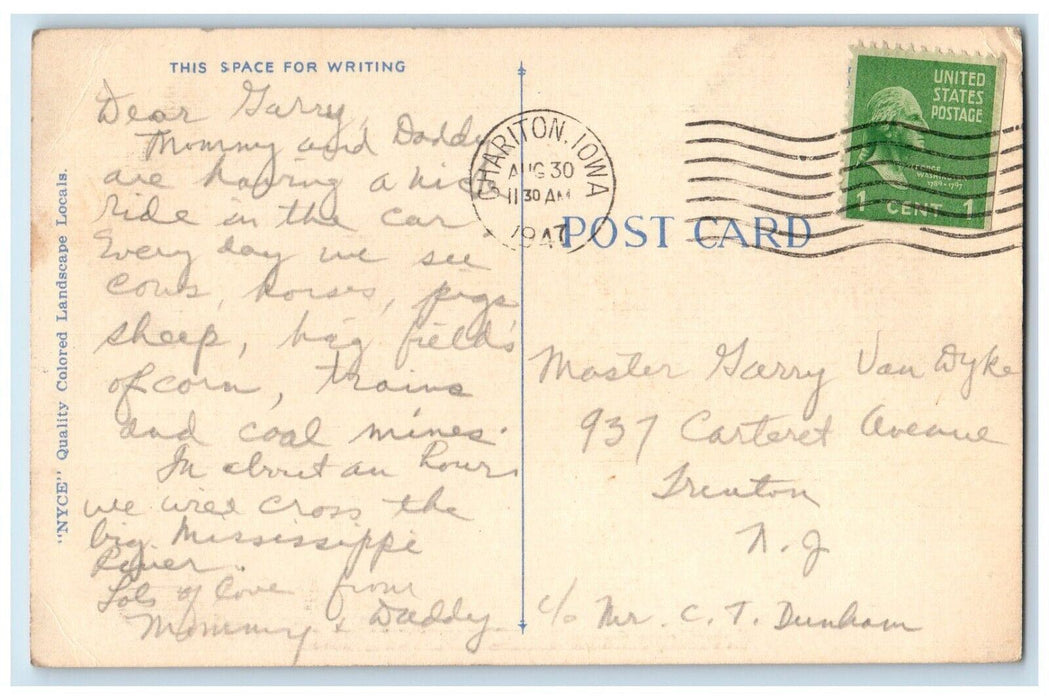 THIS SPACE FOR WRITING
Dear Garry,
Mommy and Daddy
are having a nice
ride in the car
Every day we see
cows, horses, pigs
sheep, big fields
of corn, trains
and coal mines.
In about an hour
we will cross the
big Mississippi
River.
Lots of love from
Mommy & Daddy
"NYCE" Quality Colored Landscape Locals.
CHARITON, IOWA
AUG 30
11 30 AM
1947
POST CARD
UNITED
STATES
POSTAGE
GEORGE
WASHINGTON
1789-1797
1 CENT 1
Master Garry Van Dyke
937 Carteret Avenue
Trenton
N. J
c/o Mr. C. T. Dunham